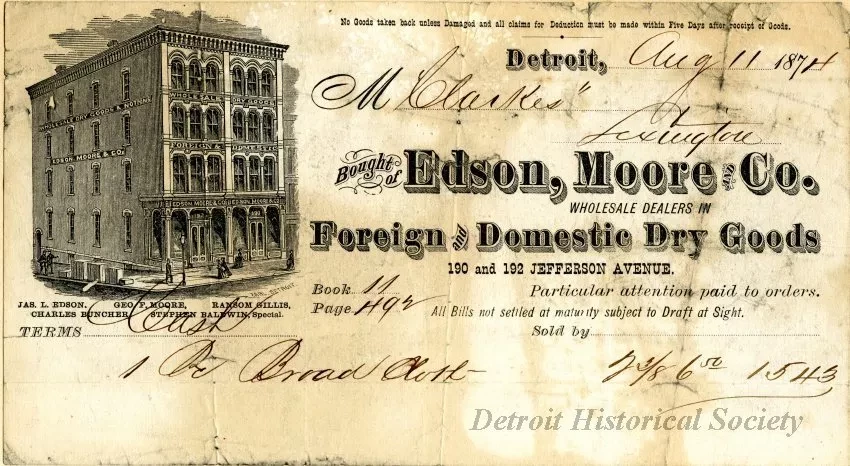 No Goods taken back unless Damaged and all claims for Deduction must be made within Five Days after receipt of Goods.
Detroit, Aug 11 1874
M Clarkes"
Lexington
Bought of Edson, Moore and Co.
WHOLESALE DEALERS IN
Foreign and Domestic Dry Goods
190 and 192 JEFFERSON AVENUE.
WHOLESALE DRY GOODS & NOTIONS
EDSON MOORE & CO.
WHOLESALE DRY GOODS
FOREIGN & DOMESTIC
EDSON, MOORE & CO. EDSON, MOORE & CO.
JAS. L. EDSON, GEO. F. MOORE, RANSOM GILLIS,
CHARLES BUNCHER, STEPHEN BALDWIN, Special.
Book 11 Particular attention paid to orders.
Page 492 All Bills not settled at maturity subject to Draft at Sight.
TERMS Cash Sold by
1 Pc Broad Cloth 2 3/8 6 00 15 43
Detroit Historical Society